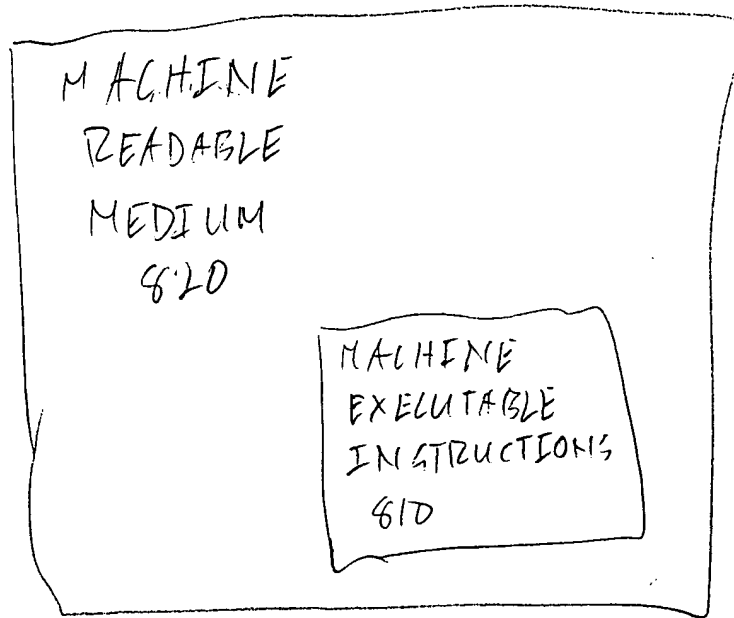 MACHINE
READABLE
MEDIUM
820
MACHINE
EXECUTABLE
INSTRUCTIONS
810